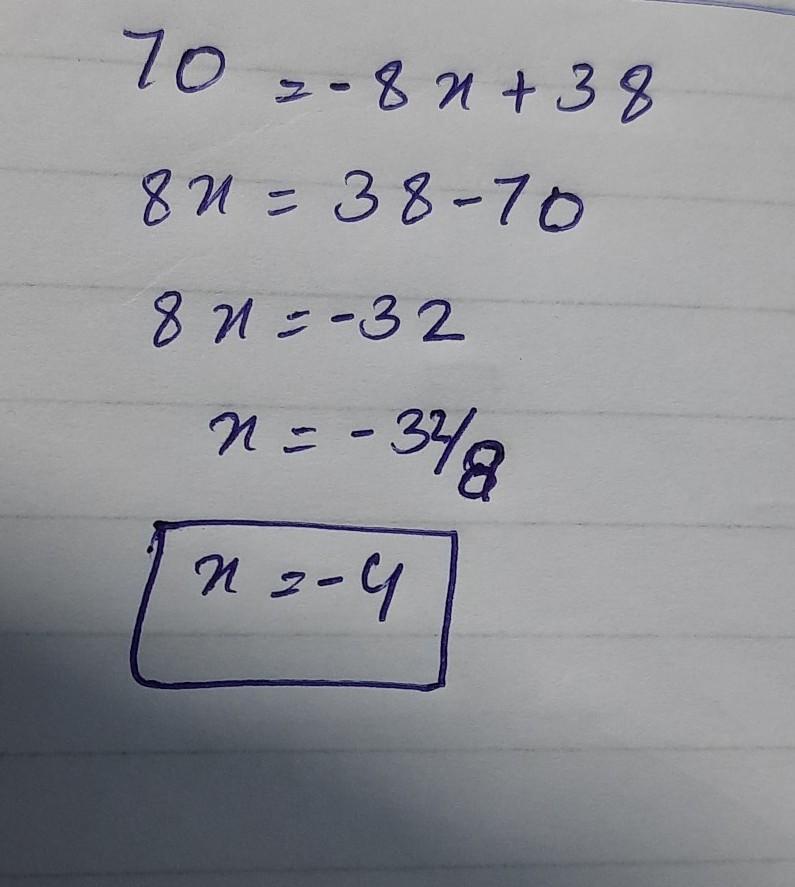 70 = -8x + 38
8x = 38 - 70
8x = -32
x = -32/8
x = -4